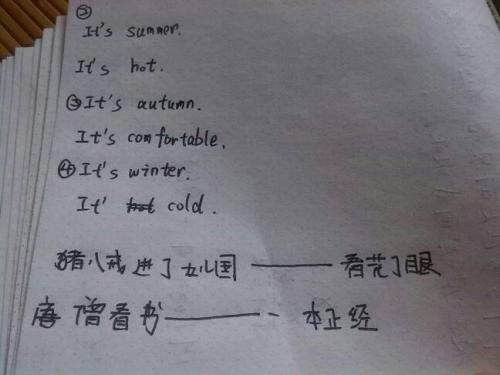 ②
It's summer.
It's hot.
③It's autumn.
It's comfortable.
④It's winter.
It' hot cold.
猪八戒进了女儿国——看花了眼
唐僧看书——一本正经